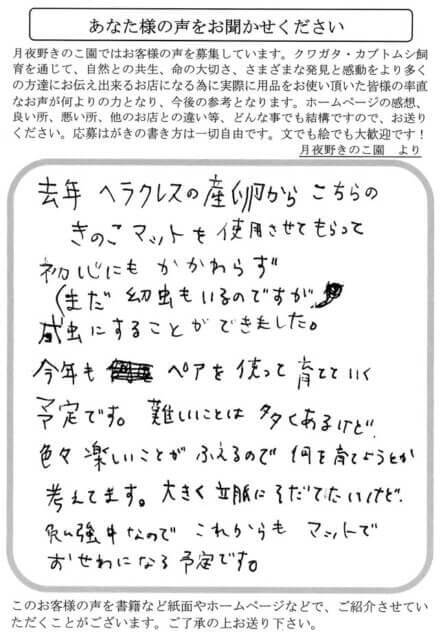 あなた様の声をお聞かせください
月夜野きのこ園ではお客様の声を募集しています。クワガタ・カブトムシ飼
育を通じて、自然との共生、命の大切さ、さまざまな発見と感動をより多く
の方達にお伝え出来るお店になる為に実際に用品をお使い頂いた皆様の率直
なお声が何よりの力となり、今後の参考となります。ホームページの感想、
良い所、悪い所、他のお店との違い等、どんな事でも結構ですので、お送り
ください。応募はがきの書き方は一切自由です。文でも絵でも大歓迎です！
月夜野きのこ園　より
去年 ヘラクレスの産卵からこちらの
きのこマットを使用させてもらって
初心にもかかわらず
(まだ 幼虫もいるのですが
成虫にすることができました。
今年も ペアを使って育てていく
予定です。難しいことは多くあるけど、
色々楽しいことがふえるので何を育てようとか
考えてます。大きく立派にそだてたいけど、
勉強中なので これからも マットで
おせわになる予定です。
このお客様の声を書籍など紙面やホームページなどで、ご紹介させてい
ただくことがございます。ご了承の上お送り下さい。